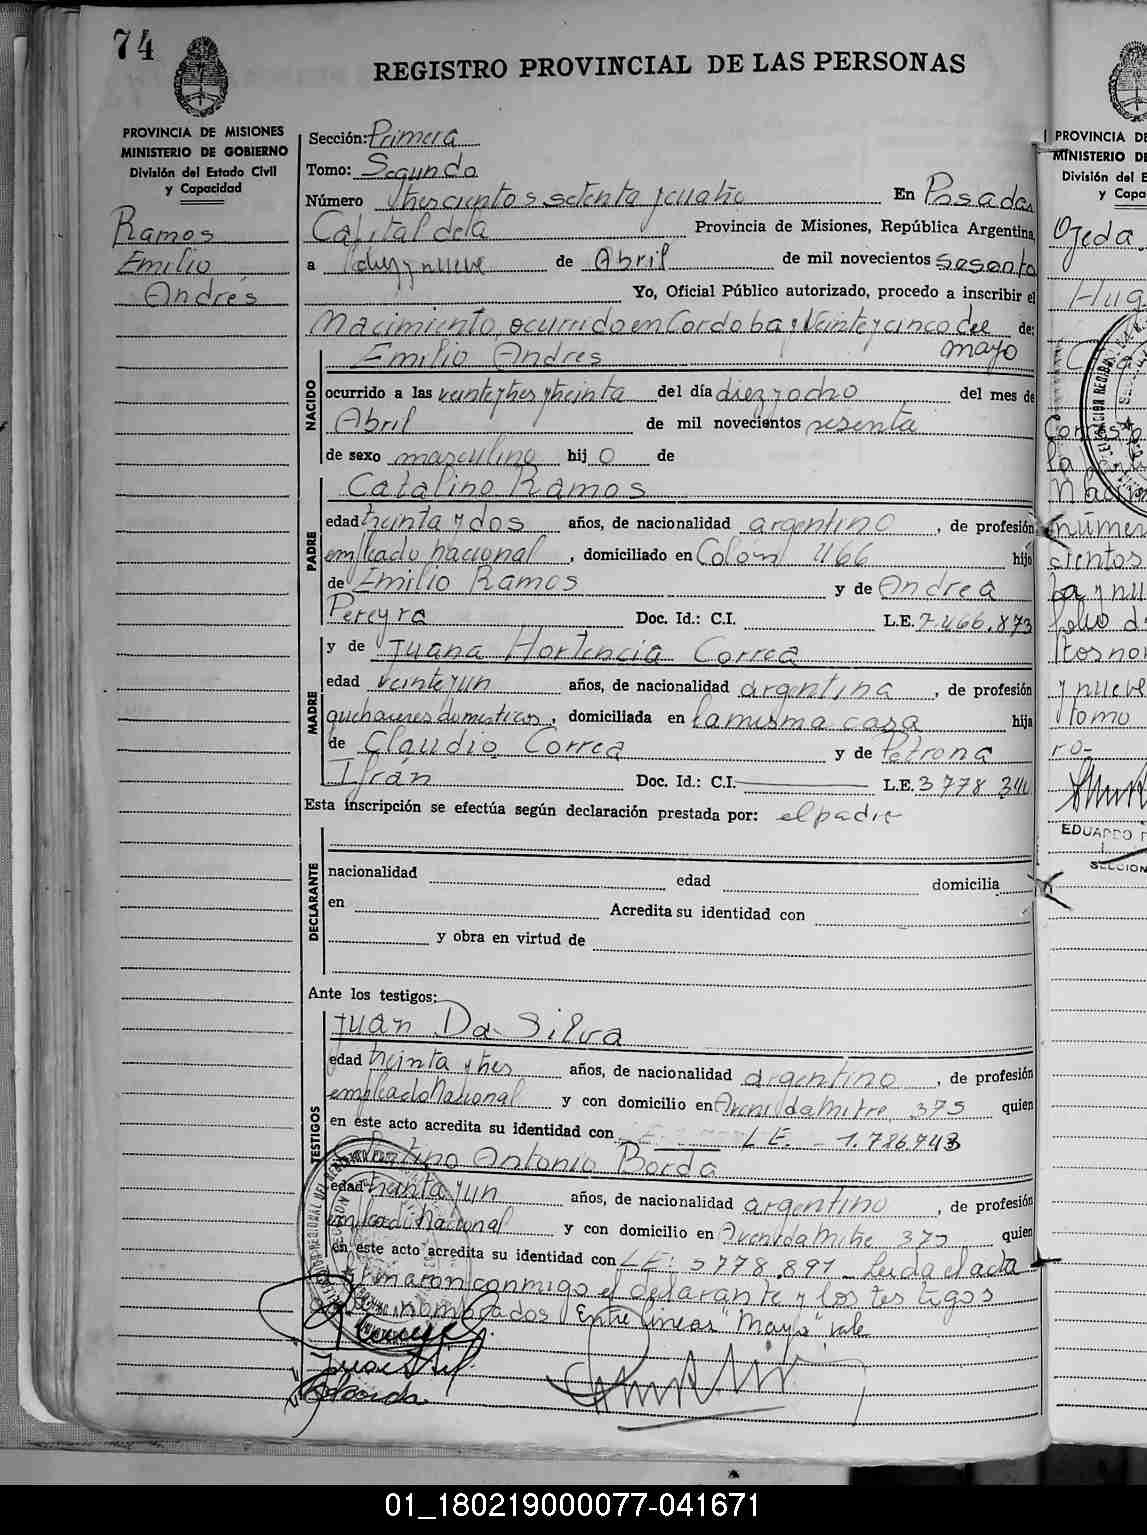 74
REGISTRO PROVINCIAL DE LAS PERSONAS
PROVINCIA DE MISIONES
MINISTERIO DE GOBIERNO
División del Estado Civil
y Capacidad
Ramos
Emilio
Andrés
Sección: Primera
Tomo: Segundo
Número Trescientos setenta y cuatro En Posadas
Capital de la Provincia de Misiones, República Argentina,
a diez y nueve de Abril de mil novecientos sesenta
Yo, Oficial Público autorizado, procedo a inscribir el
Nacimiento, ocurrido en Cordoba y Veinte y cinco del de:
mayo
NACIDO
Emilio Andres
ocurrido a las veinte y tres y treinta del día diez y ocho del mes de
Abril de mil novecientos sesenta
de sexo masculino hijo de
PADRE
Catalino Ramos
edad treinta y dos años, de nacionalidad argentino, de profesión
empleado nacional, domiciliado en Colón 466 hijo
de Emilio Ramos y de Andrea
Pereyra Doc. Id.: C.I. L.E. 7.466.873
MADRE
y de Juana Hortencia Correa
edad veinte y un años, de nacionalidad argentina, de profesión
quehaceres domesticos, domiciliada en la misma casa hija
de Claudio Correa y de Petrona
Ifrán Doc. Id.: C.I. L.E. 3778
Esta inscripción se efectúa según declaración prestada por: el padre
DECLARANTE
nacionalidad edad domicilia
en Acredita su identidad con
y obra en virtud de
Ante los testigos:
TESTIGOS
Juan Da Silva
edad treinta y tres años, de nacionalidad argentino, de profesión
empleado Nacional y con domicilio en Avenida Mitre 375 quien
en este acto acredita su identidad con L E. - 1.786.743
Antonio Borda
edad treinta y un años, de nacionalidad argentino, de profesión
empleado Nacional y con domicilio en Avenida Mitre 375 quien
en este acto acredita su identidad con LE: 3778.891 - Leida el acta
firmaron conmigo el declarante y los testigos
nombrados Entre lineas "Mayo" vale
PROVINCIA DE
MINISTERIO DE
División del E
y Capa
Ojeda
Hug
númer
cientos
y nueve
tomo
ro-
EDUARDO
SECCION
01_180219000077-041671